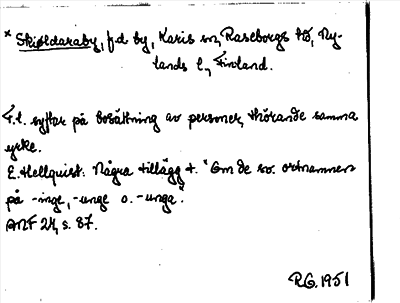 * Skjøldaraby, f.d by, Karis sn, Raseborgs hd, Ny-
lands l., Finland.
F.l. syftar på bosättning av personer, tillhörande samma
yrke.
E. Hellquist. Några tillägg t. "Om de sv. ortnamnen
på -inge, -unge o. -unga".
ANF 24, s. 87.
R.G. 1951